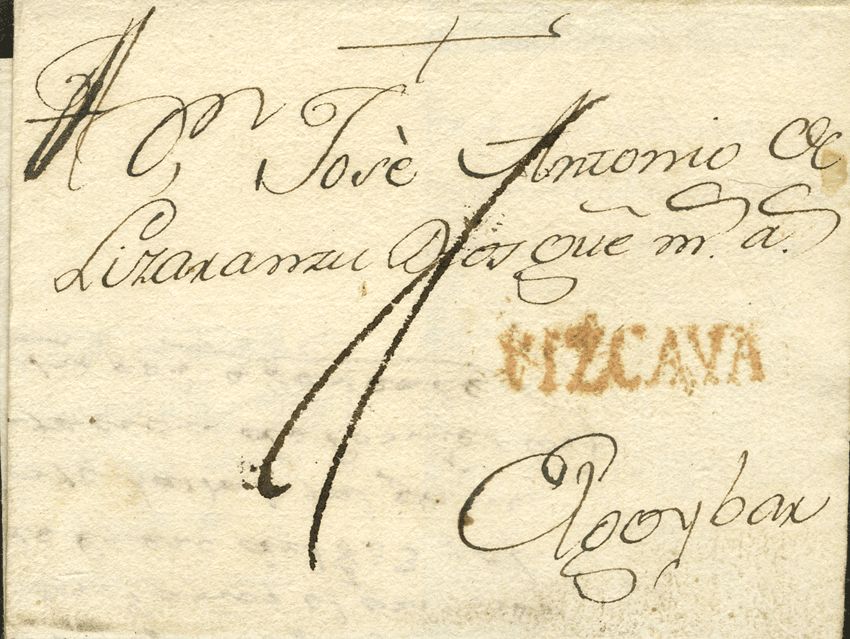 A Dn Josè Antonio de
Lizaranzu Dios gũe m.s a.s
VIZCAYA
Elgoybar